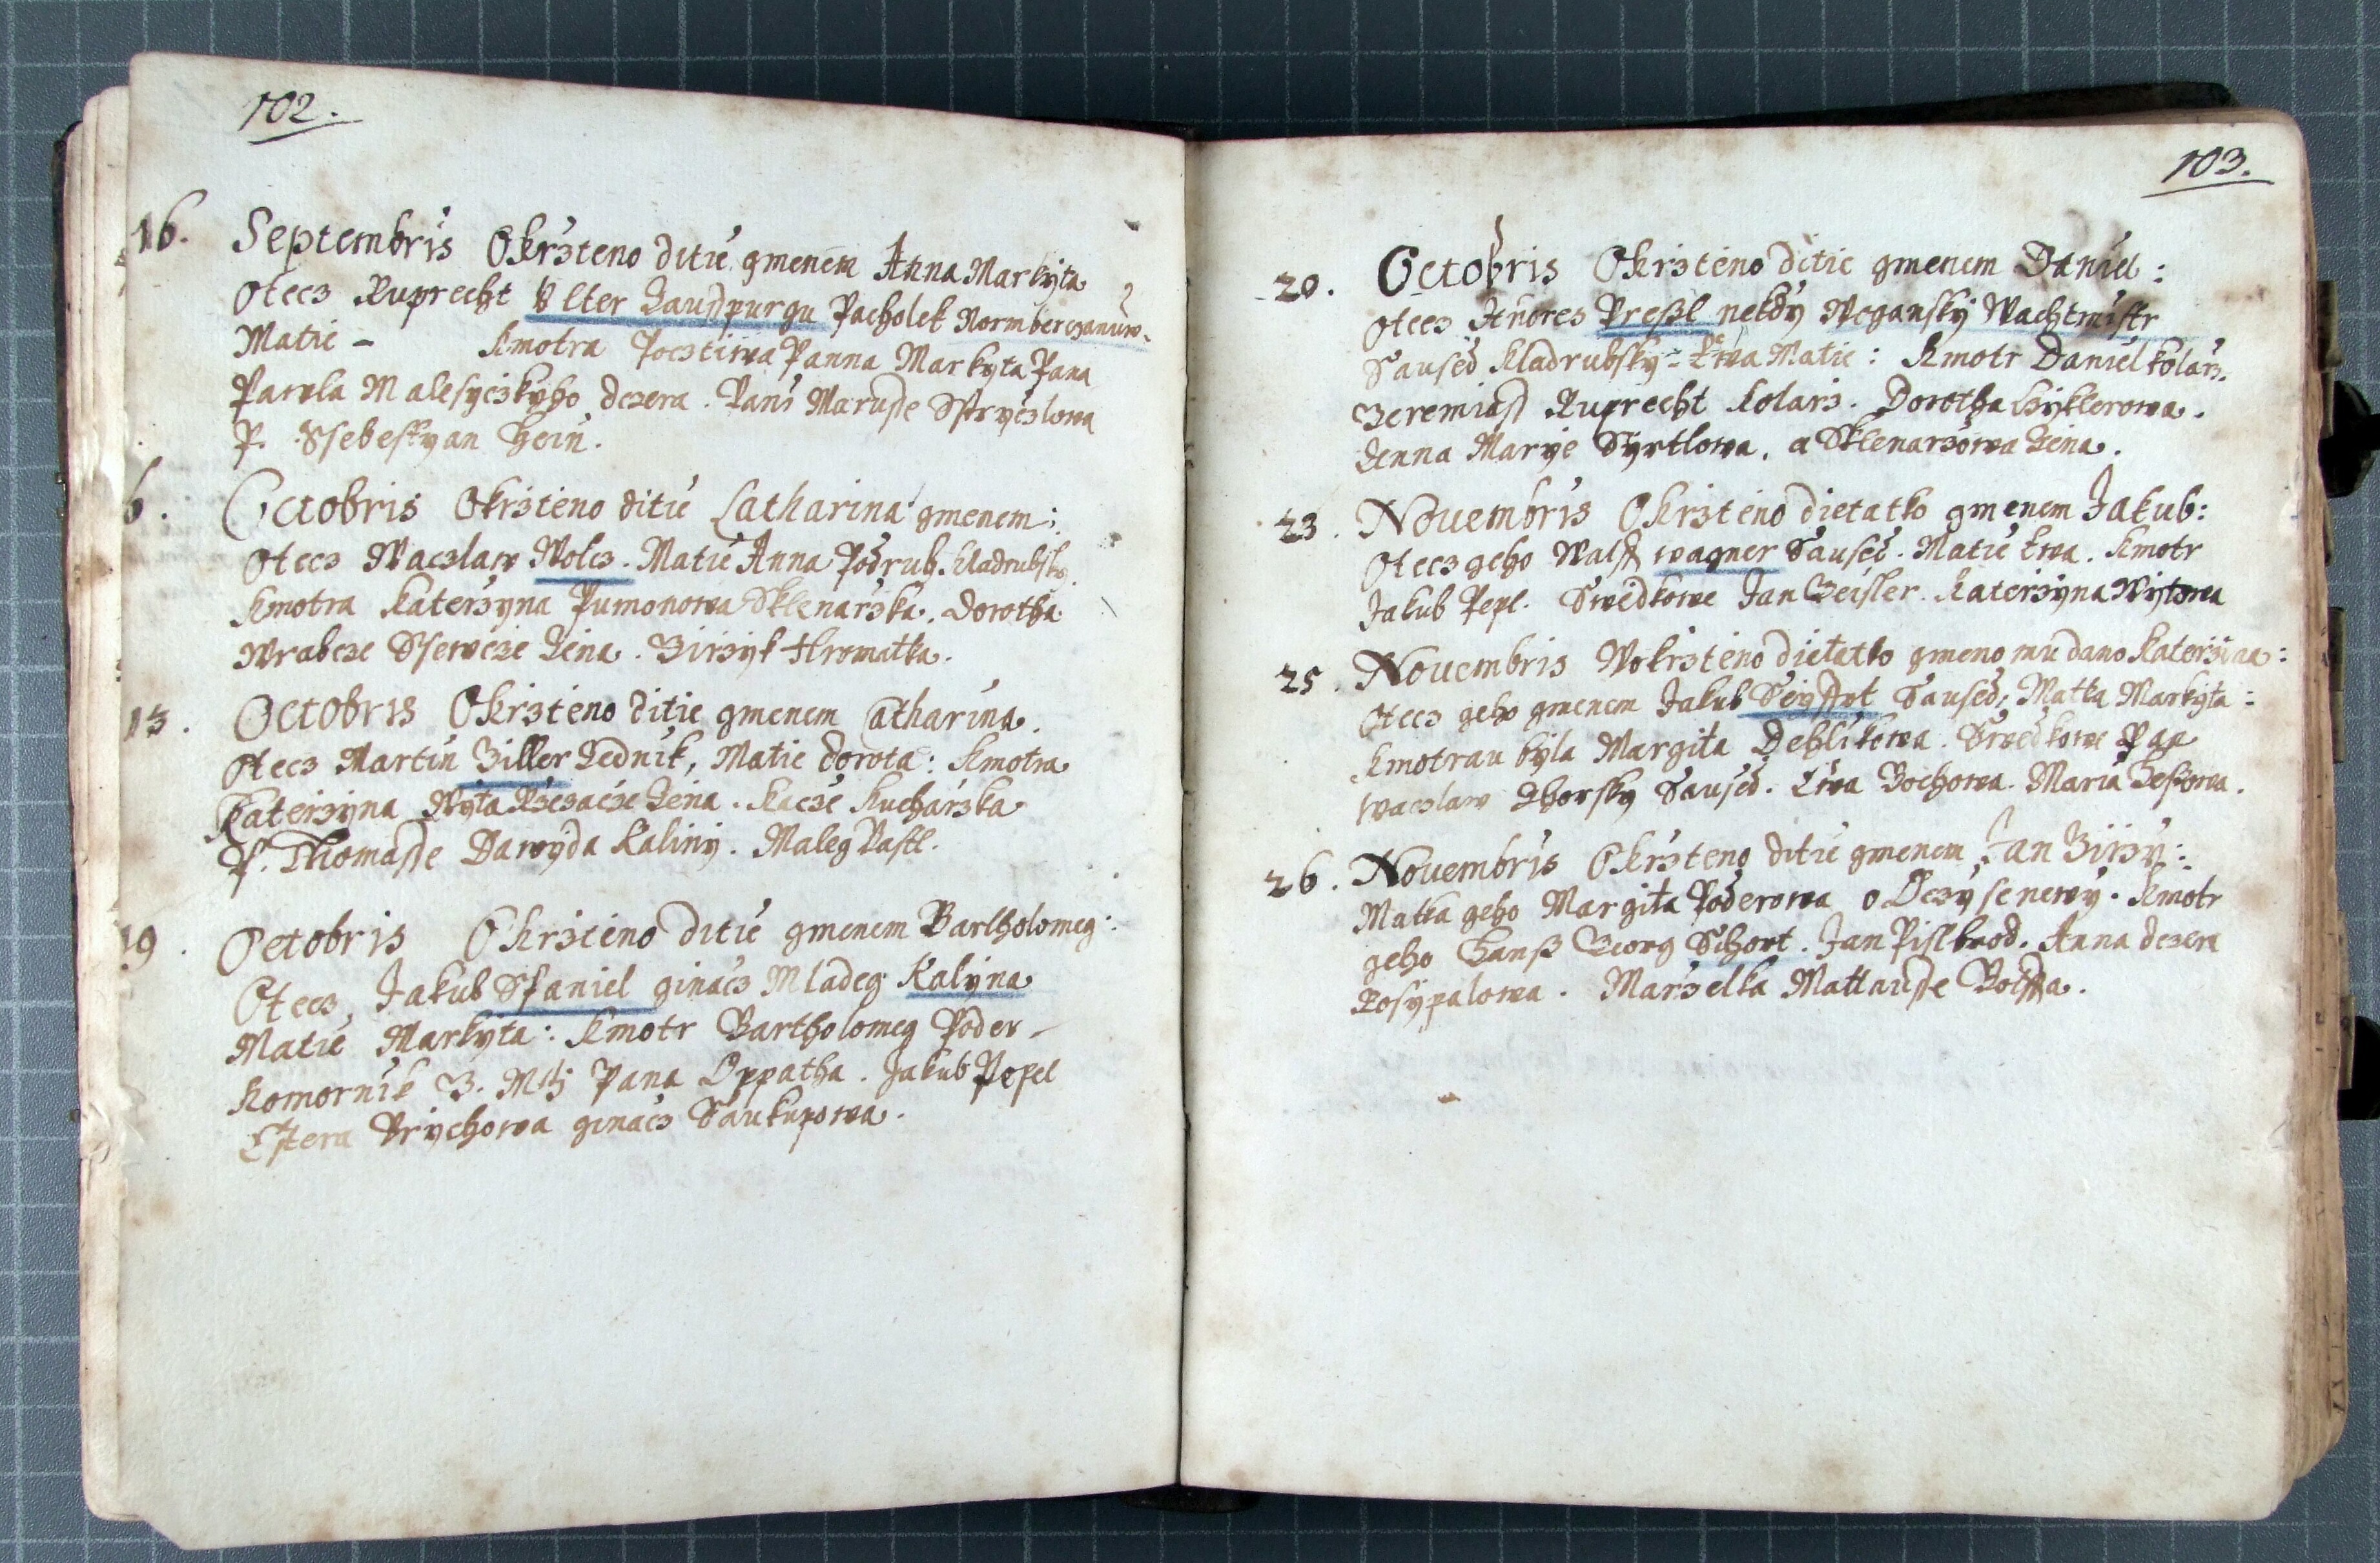 102.
16. Septembris Okrzteno ditie gmenem Anna Markyta
Otecz Ruprecht Pacholek
Matie - Kmotra Pocztiwa Panna Markyta Pana
Pawla Malesyczkyho dczera. Pani Marusse
P. Ssebestyan Hein.
6. Octobris Okrzteno ditie Catharina gmenem:
Otecz Waczlaw Wolcz. Matie Anna Podruh. Kladrubsky.
Kmotra Katerzyna Pumonowa Sklenarzka. Dorotha
Wrabcze Ssewcze Zena. Girzyk Hromatka.
13. Octobris Okrzteno ditie gmenem Catharina.
Otecz Martin Ziller Zednik, Matie Dorota: Kmotra
Katerzyna Wyta Rzezacze Zena. Kacze Kucharzka
P. Thomasse Dawyda Kaliny. Maleg Pastl.
19. Octobris Okrzteno ditie gmenem Bartholomeg:
Otecz, Jakub Spaniel ginacz Mladeg Kalyna
Matie Markyta: Kmotr Bartholomeg Poder
Komornik G. Mti Pana Oppatha. Jakub Pepel
Estera Brychowa ginacz Saukupowa.
103.
20. Octobris Okrzteno ditie gmenem Daniel:
Otecz Andres Preszl nekdy Wogansky Wachtmistr
Saused Kladrubsky - Ewa Matie: Kmotr Daniel Kolarz.
Jeremiass Ruprecht Kolarz. Dorotha Hyklerowa.
Anna Marye Syrtlowa. a Sklenarzowa Zena.
23. Nouembris Okrzteno dietatko gmenem Jakub:
Otecz geho Walss wagner Saused. Matie Ewa. Kmotr
Jakub Pepl. Swedkowe Jan Geisler. Katerzyna Wytowa
25. Nouembris Wokrzteno dietatko gmeno mu dano Katerzina:
Otecz geho gmenem Jakub Saused, Matka Markyta:
Kmotrau byla Margita Dehlikowa. Swedkowe Pan
Waczlaw Zhorsky Saused. Ewa Bochowa. Maria
26. Nouembris Okrzteno ditie gmenem Jan Girzy:
Matka geho Margita Poderowa o Oczy se newy. Kmotr
geho Hansz Georg Schort. Jan Pislbrod. Anna dczera
Posypalowa. Marzelka Mattausse Bolssa.